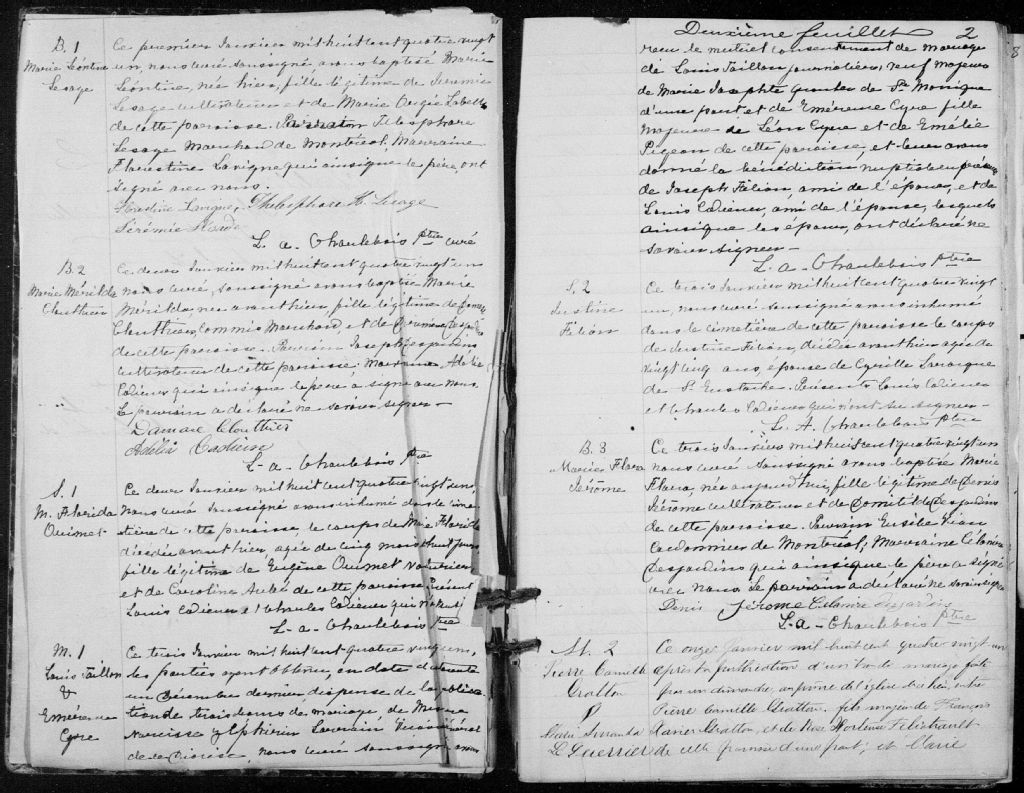 B. 1
Marie Léontine
Lesage
Ce premier Janvier mil huit cent quatre vingt
un, nous curé soussigné avons baptisé Marie
Léontine, née hier, fille légitime de Jérémie
Lesage cultivateur et de Marie Labelle
de cette paroisse. Parrain Télesphore
Lesage Marchand de Montréal, Marraine
Florestine Lavigne qui ainsi que le père, ont
signé avec nous.
Florestine Lavigne, Thélesphore H. Lesage
Jérémie
L. a. Charlebois Ptre curé
B. 2
Marie Mérilda
Clouthier
Ce deux Janvier mil huit cent quatre vingt un
nous curé, soussigné avons baptisé Marie
Mérilda, née avant hier, fille légitime de
Clouthier, Commis Marchand, et de
de cette paroisse. Parrain Joseph Desjardins
cultivateur de cette paroisse. Marraine Adélia
qui ainsi que le père a signé avec nous
Le parrain a déclaré ne savoir signer
Damase Clouthier
Adélia
L. a. Charlebois Ptre
S. 1
M. Florida
Ouimet
Ce deux Janvier mil huit cent quatre vingt un,
nous curé soussigné avons inhumé dans le cime-
tière de cette paroisse, le corps de Marie Florida
décédée avant hier, agée de cinq mois huit jours
fille légitime de Eugène Ouimet
et de Caroline Aubé de cette paroisse. Présent
Louis et Charles qui
L. a. Charlebois Ptre
M. 1
Louis Taillon
&
Emérence
Cyre
Ce trois Janvier mil huit cent quatre vingt un,
les parties ayant obtenu, en date du trente
un Décembre dernier dispense de la publica-
tion de trois bans de mariage de Messire
Narcisse Zéphirin Lorrain Vicaire Général
de ce Diocèse, nous curé soussigné avons
Deuxième feuillet 2
recu le mutuel consentement de mariage
de Louis Taillon journalier, veuf majeur
de Marie Josephte de Ste Monique
d'une part et de Emérence Cyre fille
majeure de Léon Cyre et de Emélie
Pigeon de cette paroisse, et leur avons
donné la bénédiction nuptiale en présence
de Joseph Félion, ami de l'époux, et de
Louis, ami de l'épouse, lesquels
ainsi que les époux, ont déclaré ne
savoir signer
L. a. Charlebois Ptre
S. 2
Justine
Félion
Ce trois Janvier mil huit cent quatre vingt
un, nous curé soussigné avons inhumé
dans le cimetière de cette paroisse le corps
de Justine Félion, décédée avant hier agée de
vingt cinq ans, épouse de Cyrille
de St. Eustache. Présents Louis
et Charles qui n'ont su signer.
L. A. Charlebois Ptre
B. 3
Marie Flora
Jérôme
Ce trois Janvier mil huit cent quatre vingt un
nous curé soussigné avons baptisé Marie
Flora, née aujourd'hui, fille légitime de Denis
Jérôme cultivateur et de Domitilde Desjardins
de cette paroisse. Parrain Eusèbe
Cordonnier de Montréal; Marraine Célanire
Desjardins qui ainsi que le père a signé
avec nous. Le parrain a déclaré ne savoir signer
Denis Jérôme Celanire Desjardins
L. a. Charlebois Ptre
M. 2
Pierre Camille
Gratton
&
Marie
Le Guerrier
Ce onze Janvier mil huit cent quatre vingt un
après la publication d'un ban de mariage faite
par un dimanche, au prône de l'église d'ici, entre
Pierre Camille Gratton, fils majeur de François
Xavier Gratton, et de Rose Hortense Filiatrault
de cette paroisse d'une part; et Marie